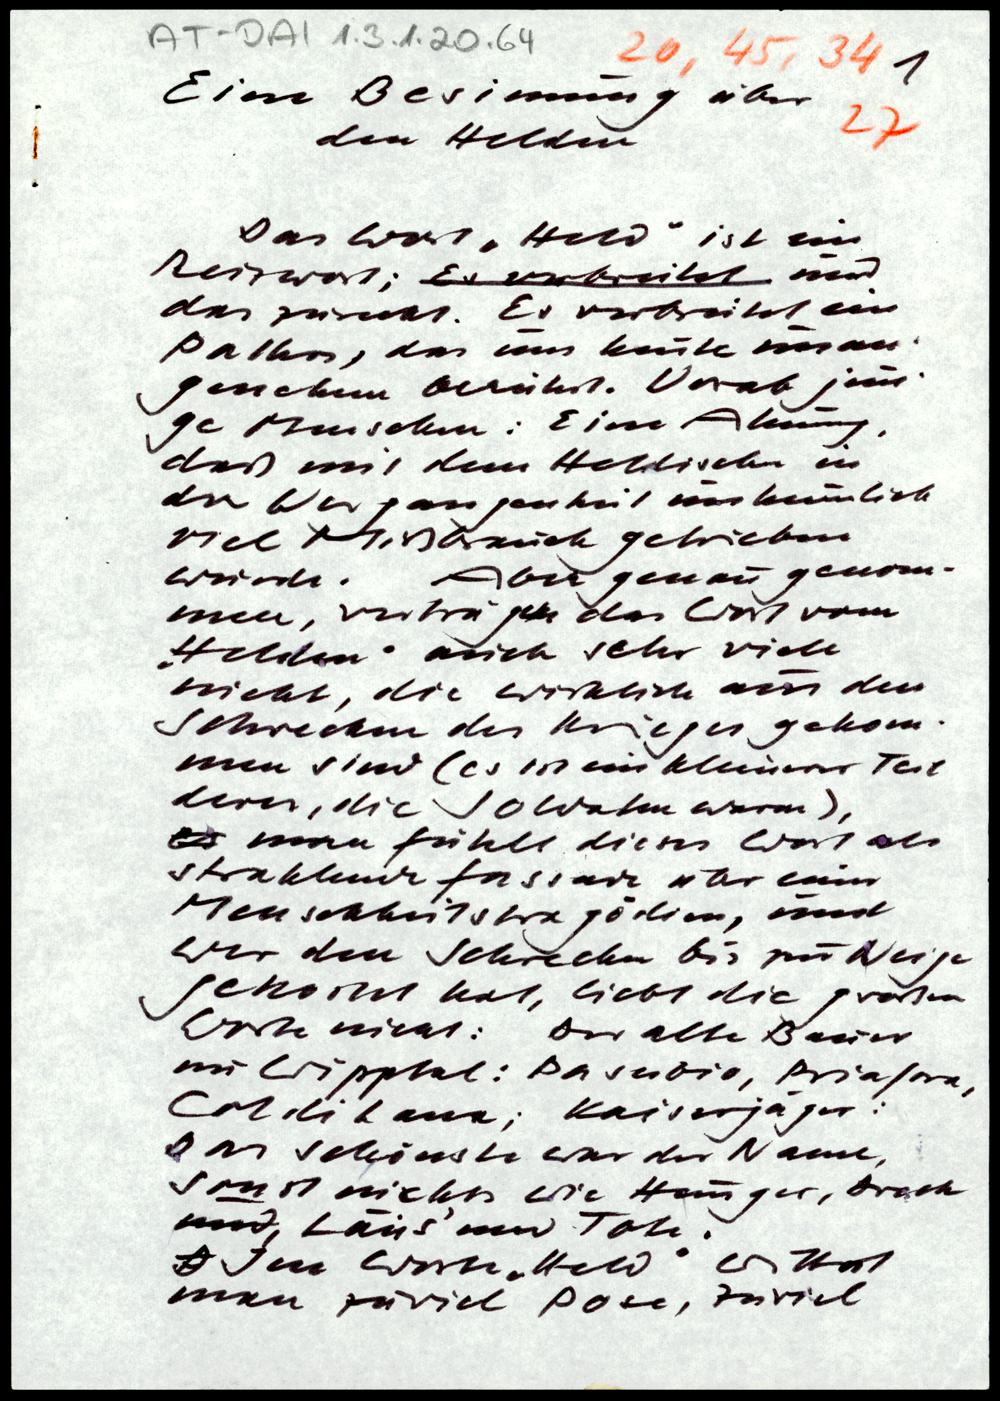 AT-DAI 1.3.1.20.64
20, 45, 34 1
27
Eine Besinnung über
den Helden
Das Wort „Held“ ist ein
Reizwort; Es verbreitet und
das zurecht. Es verbreitet ein
Pathos, das uns heute unan-
genehm berührt. Vorab jun-
ge Menschen: Eine Ahnung,
daß mit dem Heldischen in
der Vergangenheit unheimlich
viel Mißbrauch getrieben
wurde. Aber genau genom-
men, vertragen das Wort vom
„Helden“ auch sehr viele
nicht, die wirklich aus den
Schrecken des Krieges gekom-
men sind (es ist ein kleinerer Teil
derer, die Soldaten waren),
es man fühlt dieses Wort als
strahlende Fassade über einer
Menschheitstragödien, und
wer den Schrecken bis zur Neige
gekostet hat, liebt die großen
Worte nicht: Der alte Bauer
im Wipptal: Pasubio, Priafora,
Col di Lana; Kaiserjäger:
Das schönste war der Name,
sonst nichts wie Hunger, Dreck
und, Läus' und Tote.
Im Worte „Held“ wittert
man zuviel Pose, zuviel